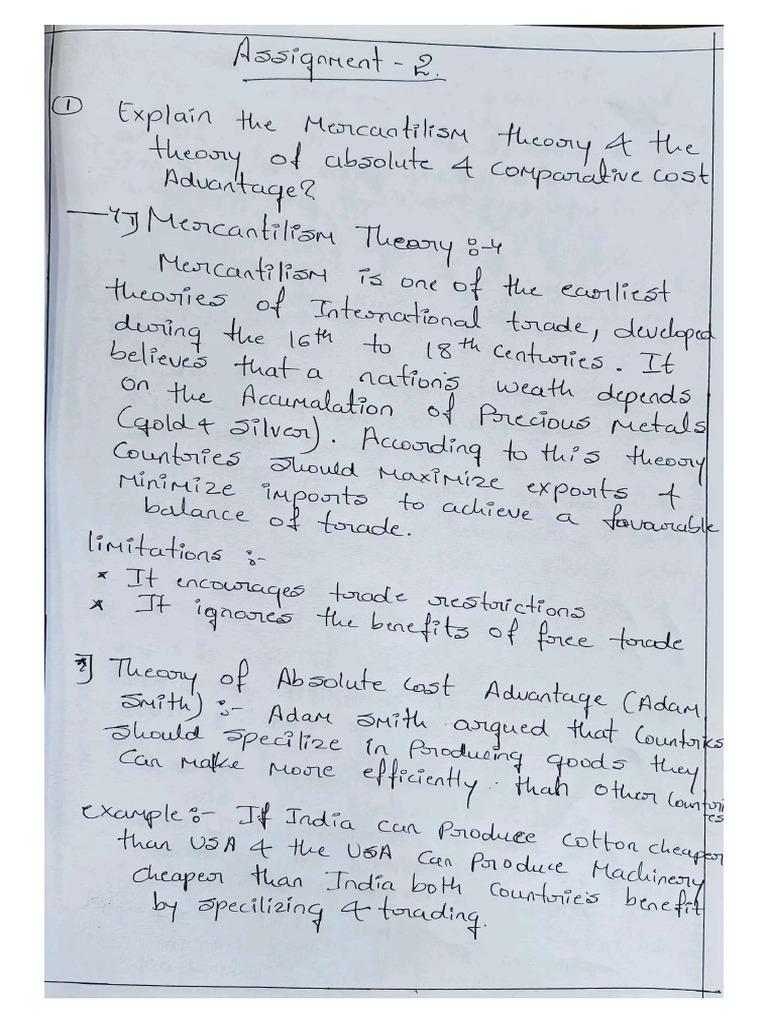 Assignment - 2.
① Explain the Mercantilism theory & the
theory of absolute & comparative cost
Advantage?
1] Mercantilism Theory :-
Mercantilism is one of the earliest
theories of International trade, developed
during the 16th to 18th centuries. It
believes that a nation's weath depends
on the Accumalation of Precious Metals
(gold & silver). According to this theory
Countries should maximize exports &
minimize imports to achieve a favourable
balance of trade.
limitations :-
* It encourages trade restrictions
* It ignores the benefits of free trade
2] Theory of Absolute Cost Advantage (Adam
Smith) :- Adam Smith argued that Countries
should specilize in Producing goods they
Can make more efficiently than other Countries
example :- If India can Produce cotton cheaper
than USA & the USA Can Produce Machinery
cheaper than India both Countries benefit
by specilizing & trading.